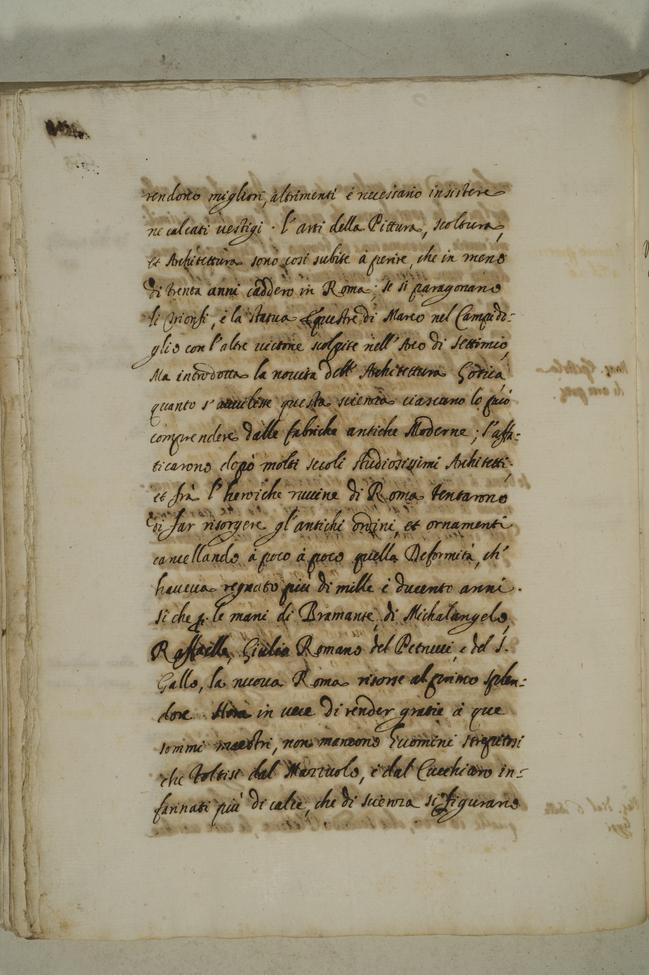 rendono migliori, altrimenti è necessario insistere
ne calcati vestigi. l'arti della Pittura, scoltura,
et Architettura sono così subite à perire, che in meno
di trenta anni caddero in Roma; se si paragonano
li Trionfi, e la statua Equestre di Marco nel Campido-
glio con l'altre vittorie scolpite nell'Arco di Settimio,
Ma introdotta la novità dell'Architettura Gotica
quanto s'avvilisse questa scienza ciascuno lo può
comprendere dalle fabriche antiche Moderne; s'affa-
ticarono dopò molti secoli studiosissimi Architetti,
et frà l'heroiche ruuine di Roma tentarono
di far risorgere gl'antichi ordini, et ornamenti
cancellando à poco à poco quella Deformità, ch'
haueua regnato più di mille e ducento anni.
si che p. le mani di Bramante, di Michalangelo
Raffaelle, Giulio Romano del Petrucci, e del S.
Gallo, la nuoua Roma risorse al primo splen-
dore. Hora in uece di render gratie à que
sommi maestri, non mancono Huomini strepitosi
che toltisi dal Marzuolo, e dal Cucchiaro in-
farinati più di calce, che di scienza si figurano